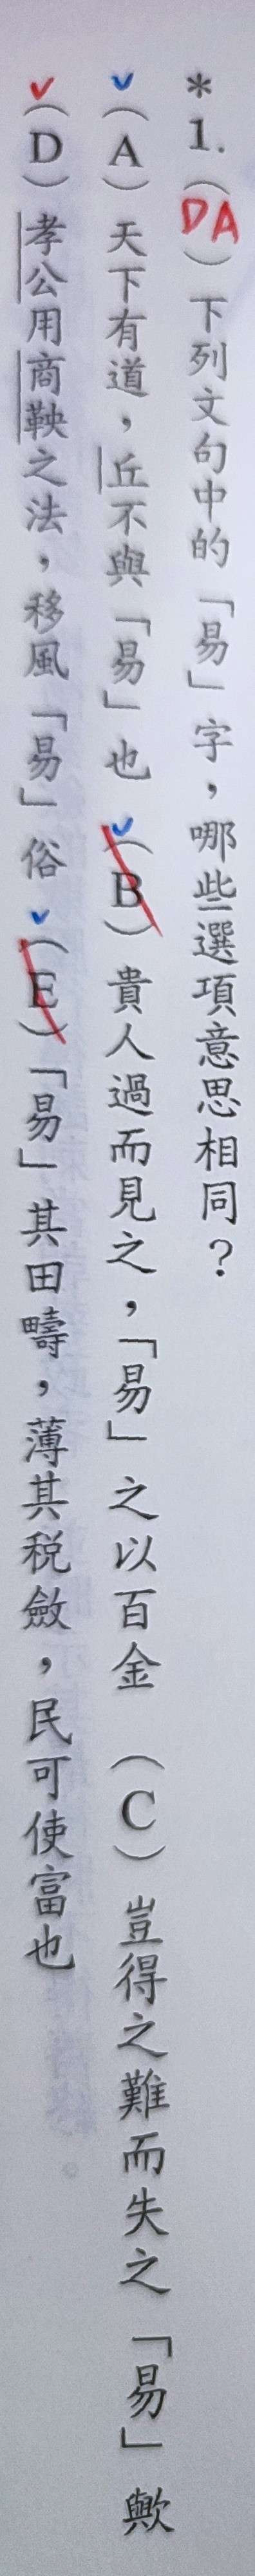 *1.（DA）下列文句中的「易」字，哪些選項意思相同？
（A）天下有道，丘不與「易」也 （B）貴人過而見之，「易」之以百金 （C）豈得之難而失之「易」歟
（D）孝公用商鞅之法，移風「易」俗 （E）「易」其田疇，薄其稅斂，民可使富也